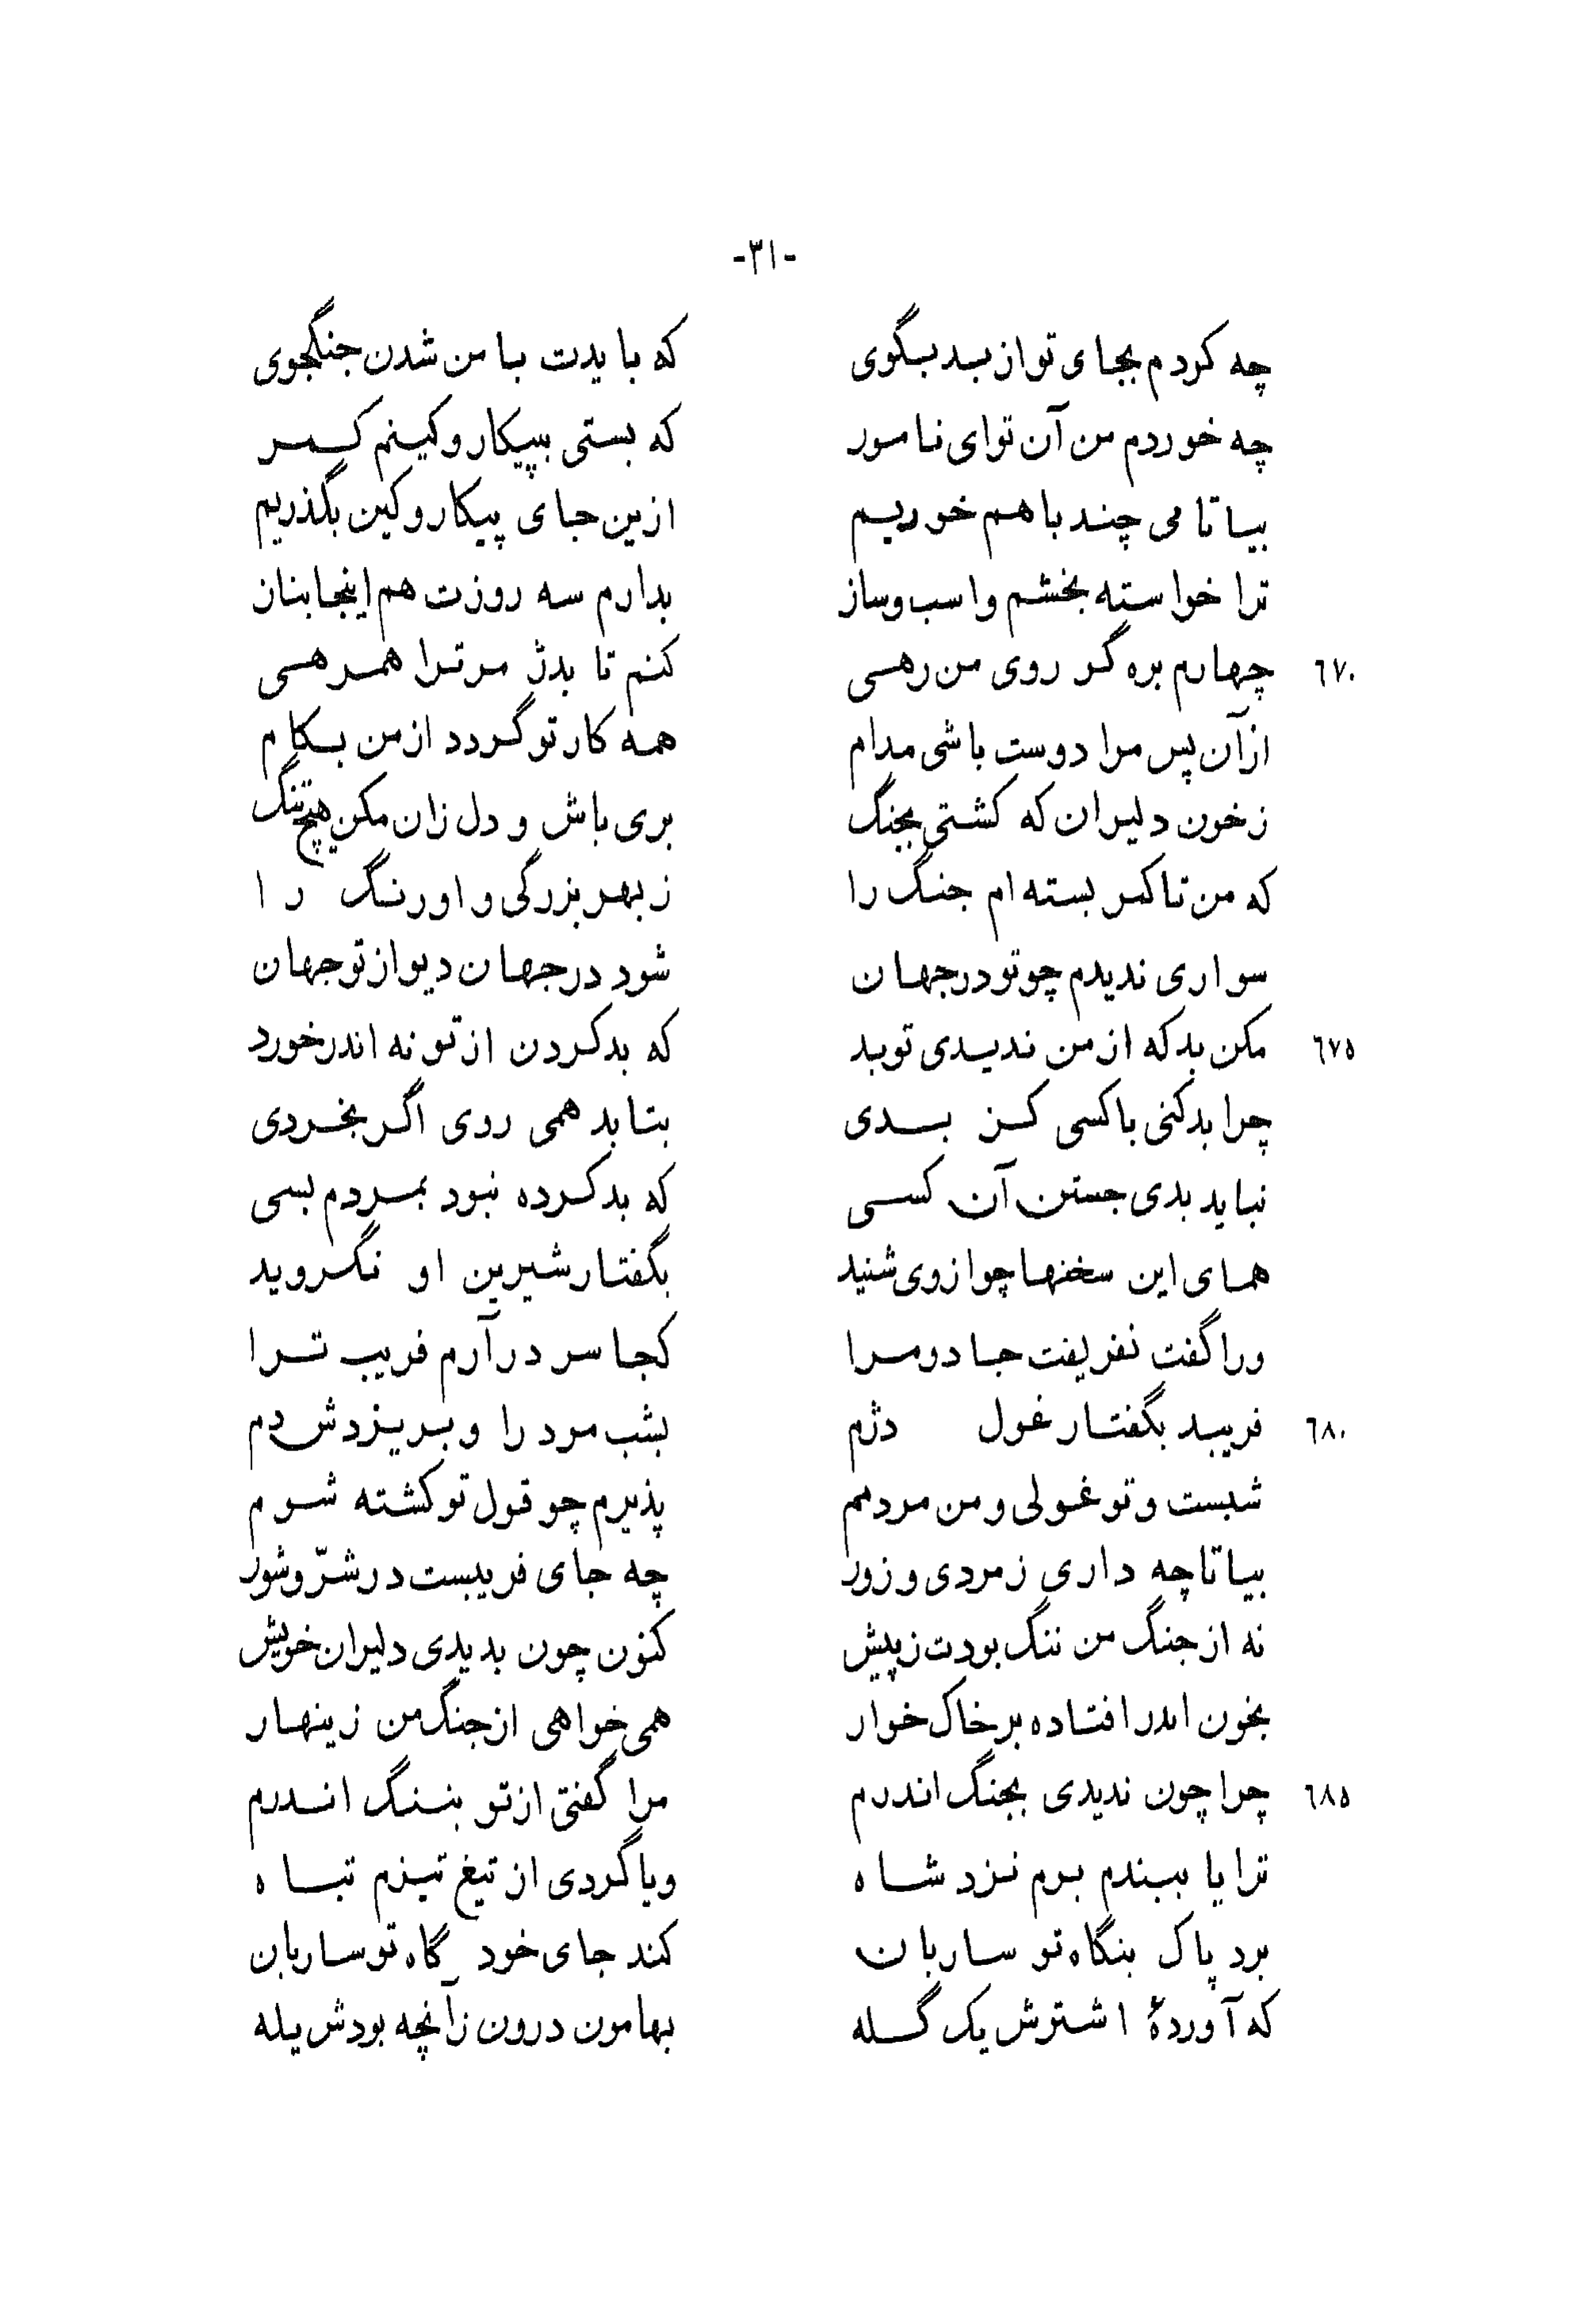 -۳۱-
چه کردم بجای تو از بد بگوی که بایدت با من شدن جنگجوی
چه خوردم من آن تو ای نامور که بستی بپیکار و کینم کمر
بیا تا می چند با هم خوریم ازین جای پیکار و کین بگذریم
ترا خواسته بخشم و اسب و ساز بدارم سه روزت هم اینجا بناز
۶۷۰ چهارم بره گر روی من رهی کنم تا بدژ مر ترا همرهی
از آن پس مرا دوست باشی مدام همه کار تو گردد از من بکام
ز خون دلیران که کشتی بجنگ بری باش و دل زان مکن هیچ تنگ
که من تا کمر بسته ام جنگ را ز بهر بزرگی و اورنگ را
سواری ندیدم چو تو در جهان شود در جهان دیو از تو جهان
۶۷۵ مکن بد که از من ندیدی تو بد که بد کردن از تو نه اندر خورد
چرا بد کنی با کسی کز بدی بتابد همی روی اگر بخردی
نباید بدی جستن آن کسی که بد کرده نبود بمردم بسی
همای این سخنها چو از وی شنید بگفتار شیرین او نگروید
ورا گفت نفریفت جادو مرا کجا سر در آرم فریب ترا
۶۸۰ فریبد بگفتار غول دژم بشب مرد را و بریزدش دم
شبست و تو غولی و من مردمم پذیرم چو قول تو کشته شوم
بیا تا چه داری ز مردی و زور چه جای فریبست در شرّ و شور
نه از جنگ من ننگ بودت ز پیش کنون چون بدیدی دلیران خویش
بخون اندر افتاده بر خاک خوار همی خواهی از جنگ من زینهار
۶۸۵ چرا چون ندیدی بجنگ اندرم مرا گفتی از تو بننگ اندرم
ترا یا ببندم برم نزد شاه ویا گردی از تیغ تیزم تباه
برد پاک بنگاه تو ساربان کند جای خود گاه تو ساربان
که آوردهٔ اشترش یک گله بهامون درون زآنچه بودش یله